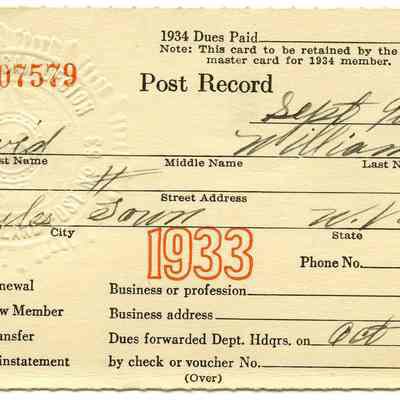 1934 Dues Paid
Note: This card to be retained by the
master card for 1934 member.
07579
Post Record
Sept
William
st Name Middle Name Last N
Street Address
Town W. V
City State
1933
Phone No.
newal Business or profession
w Member Business address
ansfer Dues forwarded Dept. Hdqrs. on Oct
instatement by check or voucher No.
(Over)